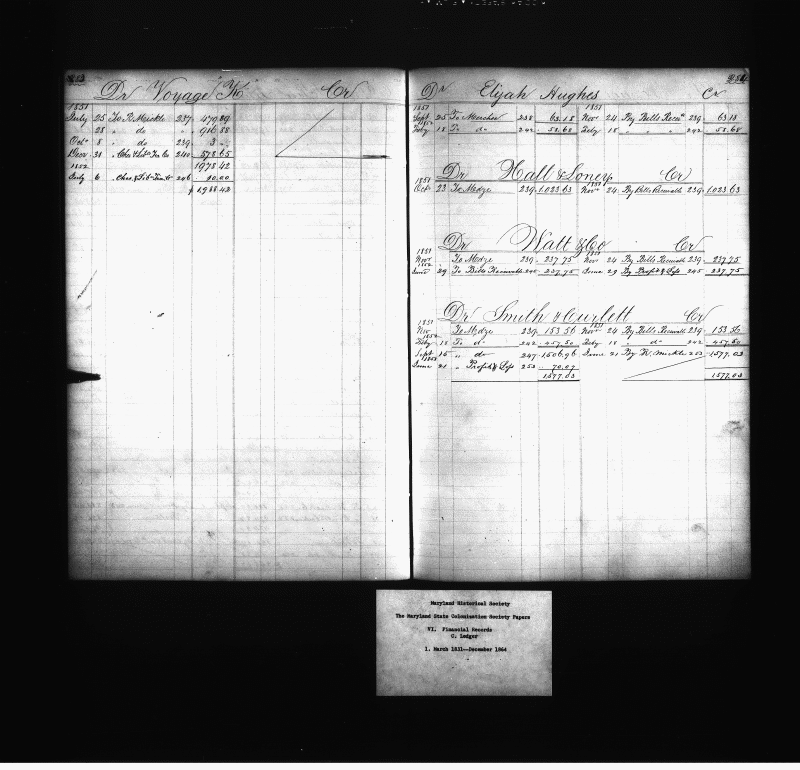 Dr Voyage Cr
1851
July 25 To R. Mickle 237 479 89
28 " do " 916 88
Octr 8 " do 239 3
Decr 31 240 578 65
1852 1978 42
July 6 246 10.00
$ 1988 42
254
Dr Elijah Hughes Cr
1851 1851
Sept 25 To Merchse 238 63.18 Nov 24 By Bills Recе 239 63 18
1852
Feby 18 To do 242 58.68 Feby 18 " " " 242 58.68
Dr Hall & Loney Cr
1851 1851
Oct 23 To Mdze 239 1.023 63 Novr 24 By Bills 239 1.023 63
Dr Watt & Co Cr
1851 1851
Novr To Mdze 239 237 75 Nov 24 By Bills 239 237.75
1852
June 29 To Bills 237.75 June 29 By Profit & Loss 245 237.75
Dr Smith & Curlett Cr
1851 1851
Nov To Mdze 239 153 56 Novr 24 By Bills 239 153 56
1852
Feby 18 To do 242 457.50 Feby 18 " do 242 457.50
Sept 15 " do 247 1506.96 June 21 By R. Mickle 253 1577.03
1853
June 21 " Profit & Loss 253 70.07
1577.03 1577.03
Maryland Historical Society
The Maryland State Colonization Society Papers
VI. Financial Records
C. Ledger
1. March 1831--December 1864